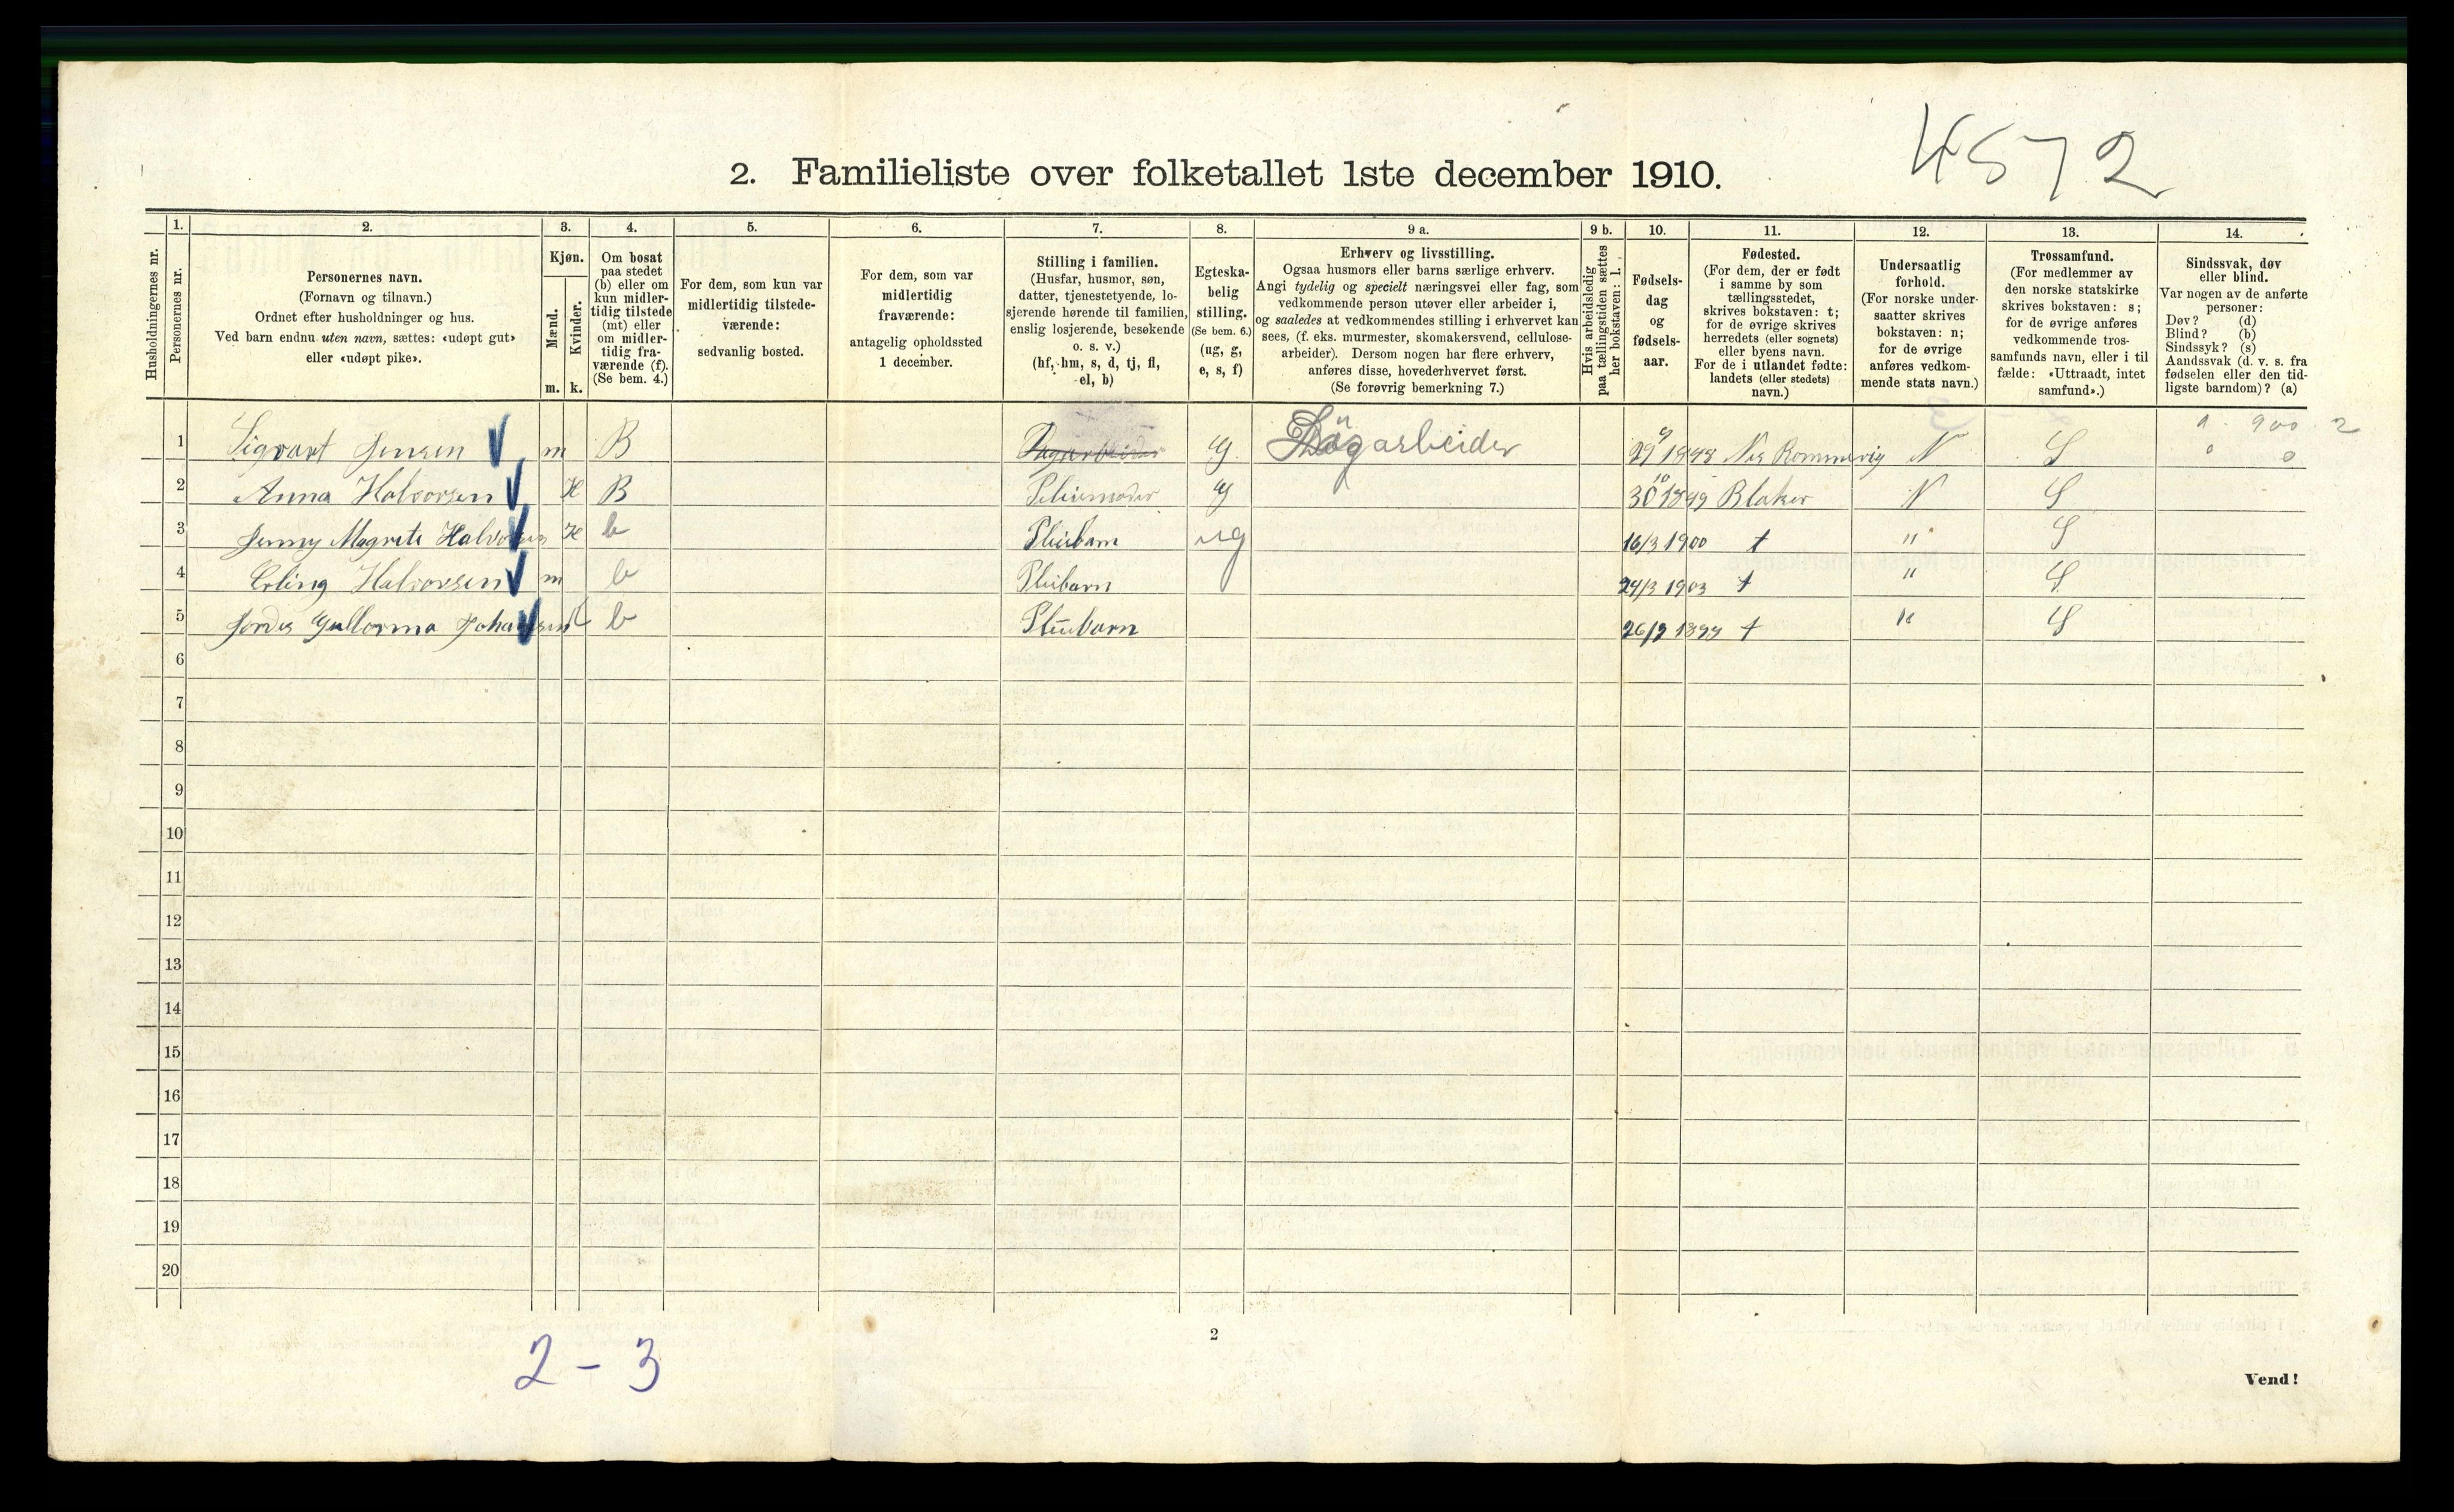 4572
2. Familieliste over folketallet 1ste december 1910.
Husholdningernes nr.
1. Personernes nr.
2. Personernes navn. (Fornavn og tilnavn.) Ordnet efter husholdninger og hus. Ved barn endnu uten navn, sættes: «udøpt gut» eller «udøpt pike».
3. Kjøn. Mænd. m. Kvinder. k.
4. Om bosat paa stedet (b) eller om kun midlertidig tilstede (mt) eller om midlertidig fraværende (f). (Se bem. 4.)
5. For dem, som kun var midlertidig tilstedeværende: sedvanlig bosted.
6. For dem, som var midlertidig fraværende: antagelig opholdssted 1 december.
7. Stilling i familien. (Husfar, husmor, søn, datter, tjenestetyende, losjerende hørende til familien, enslig losjerende, besøkende o. s. v.) (hf, hm, s, d, tj, fl, el, b)
8. Egteskabelig stilling. (Se bem. 6.) (ug, g, e, s, f)
9 a. Erhverv og livsstilling. Ogsaa husmors eller barns særlige erhverv. Angi tydelig og specielt næringsvei eller fag, som vedkommende person utøver eller arbeider i, og saaledes at vedkommendes stilling i erhvervet kan sees, (f. eks. murmester, skomakersvend, cellulosearbeider). Dersom nogen har flere erhverv, anføres disse, hovederhvervet først. (Se forøvrig bemerkning 7.)
9 b. Hvis arbeidsledig paa tællingstiden sættes her bokstaven: l.
10. Fødselsdag og fødselsaar.
11. Fødested. (For dem, der er født i samme by som tællingsstedet, skrives bokstaven: t; for de øvrige skrives herredets (eller sognets) eller byens navn. For de i utlandet fødte: landets (eller stedets) navn.)
12. Undersaatlig forhold. (For norske undersaatter skrives bokstaven: n; for de øvrige anføres vedkommende stats navn.)
13. Trossamfund. (For medlemmer av den norske statskirke skrives bokstaven: s; for de øvrige anføres vedkommende trossamfunds navn, eller i tilfælde: «Uttraadt, intet samfund».)
14. Sindssvak, døv eller blind. Var nogen av de anførte personer: Døv? (d) Blind? (b) Sindssyk? (s) Aandssvak (d. v. s. fra fødselen eller den tidligste barndom)? (a)
0 . 900 . 2
1 Sigvart Jensen m B Dagarbeider g Dagarbeider N S
2 Anna Halvorsen K B Pleiemoder g Blaker N S
3 Jenny Magrete Halvorsen K b Pleibarn ug 16/3 1900 t " S
4 Erling Halvorsen m b Pleibarn 24/3 1903 t " S
5 Johansen k b Pleibarn 26/9 1899 t " S
6
7
8
9
10
11
12
13
14
15
16
17
18
19
20
2
2 - 3
Vend!